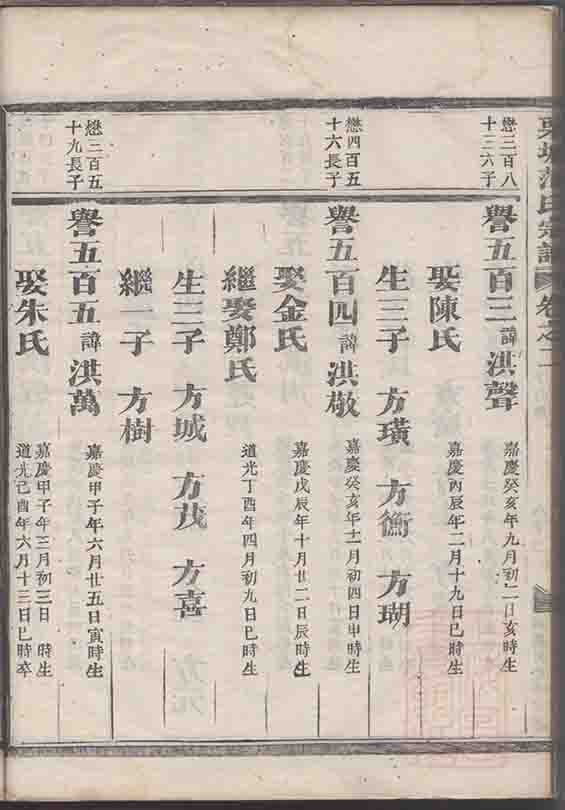 氏宗譜 卷之二
懋三百八
十三六子
譽五百三 諱 洪聲 嘉慶癸亥年九月初二日亥時生
娶陳氏 嘉慶丙辰年二月十九日巳時生
生三子 方璜 方衡 方瑚
懋四百五
十六長子
譽五百四 諱 洪敬 嘉慶癸亥年十一月初四日申時生
娶金氏 嘉慶戊辰年十月廿二日辰時生
繼娶鄭氏 道光丁酉年四月初九日巳時生
生三子 方城 方茂 方喜
繼一子 方樹
懋三百五
十九長子
譽五百五 諱 洪萬 嘉慶甲子年六月廿五日寅時生
娶朱氏 嘉慶甲子年三月初三日 時生
道光己酉年六月十三日巳時卒